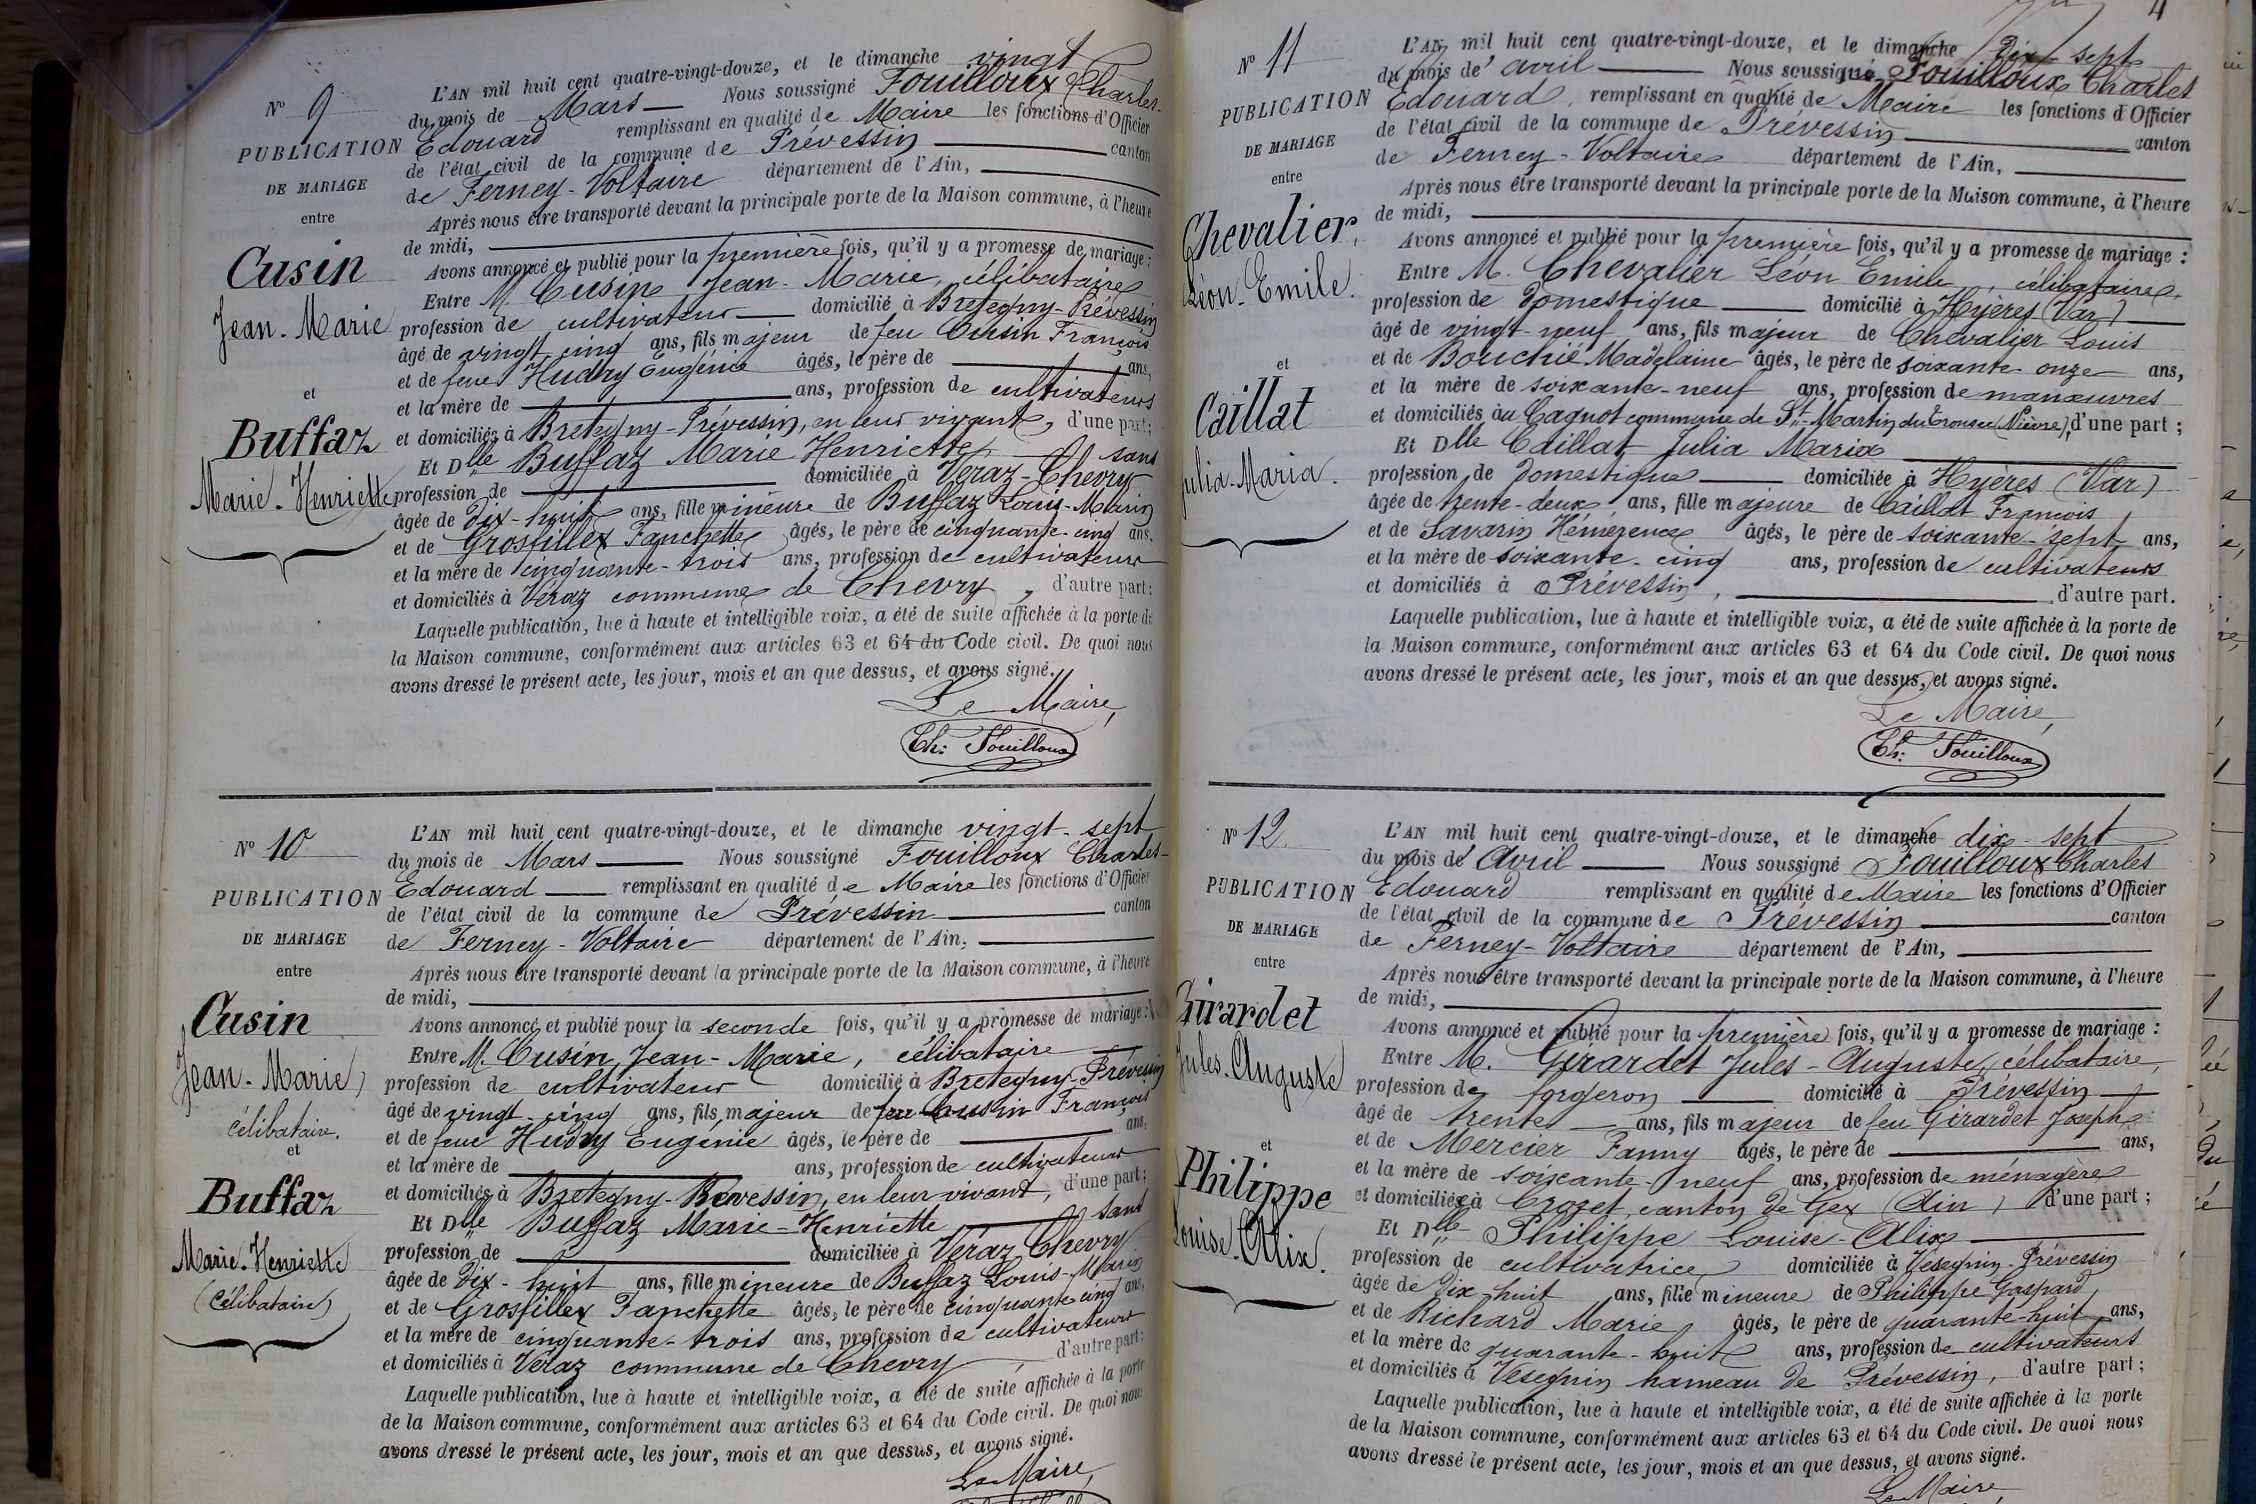 N° 9
PUBLICATION
DE MARIAGE
entre
Cusin
Jean-Marie
et
Buffaz
Marie-Henriette
L'AN mil huit cent quatre-vingt-douze, et le dimanche vingt
du mois de Mars Nous soussigné Fouilloux Charles-
Edouard remplissant en qualité de Maire les fonctions d'Officier
de l'état civil de la commune de Prévessin canton
de Ferney-Voltaire département de l'Ain,
Après nous être transporté devant la principale porte de la Maison commune, à l'heure
de midi,
Avons annoncé et publié pour la première fois, qu'il y a promesse de mariage :
Entre M. Cusin Jean-Marie, célibataire
profession de cultivateur domicilié à Bretegny-Prévessin
âgé de vingt cinq ans, fils majeur de feu Cusin François
et de feue Hudry Eugénie âgés, le père de ans,
et la mère de ans, profession de cultivateurs
et domiciliés à Bretegny-Prévessin, en leur vivant, d'une part ;
Et Dlle Buffaz Marie Henriette sans
profession de domiciliée à Véraz-Chevry
âgée de dix-huit ans, fille mineure de Buffaz Louis-Marin
et de Grosfillex Fanchette âgés, le père de cinquante-cinq ans,
et la mère de cinquante-trois ans, profession de cultivateurs
et domiciliés à Véraz commune de Chevry, d'autre part ;
Laquelle publication, lue à haute et intelligible voix, a été de suite affichée à la porte de
la Maison commune, conformément aux articles 63 et 64 du Code civil. De quoi nous
avons dressé le présent acte, les jour, mois et an que dessus, et avons signé.
Le Maire,
Ch: Fouilloux
N° 10
PUBLICATION
DE MARIAGE
entre
Cusin
Jean-Marie
célibataire.
et
Buffaz
Marie-Henriette
(célibataire)
L'AN mil huit cent quatre-vingt-douze, et le dimanche vingt-sept
du mois de Mars Nous soussigné Fouilloux Charles-
Edouard remplissant en qualité de Maire les fonctions d'Officier
de l'état civil de la commune de Prévessin canton
de Ferney-Voltaire département de l'Ain,
Après nous être transporté devant la principale porte de la Maison commune, à l'heure
de midi,
Avons annoncé et publié pour la seconde fois, qu'il y a promesse de mariage :
Entre M. Cusin Jean-Marie, célibataire
profession de cultivateur domicilié à Bretegny-Prévessin
âgé de vingt-cinq ans, fils majeur de feu Cusin François
et de feue Hudry Eugénie âgés, le père de ans,
et la mère de ans, profession de cultivateurs
et domiciliés à Bretegny-Prévessin, en leur vivant, d'une part ;
Et Dlle Buffaz Marie-Henriette sans
profession de domiciliée à Véraz Chevry
âgée de dix-huit ans, fille mineure de Buffaz Louis-Marin
et de Grosfillex Fanchette âgés, le père de cinquante cinq ans,
et la mère de cinquante-trois ans, profession de cultivateurs
et domiciliés à Véraz commune de Chevry, d'autre part ;
Laquelle publication, lue à haute et intelligible voix, a été de suite affichée à la porte
de la Maison commune, conformément aux articles 63 et 64 du Code civil. De quoi nous
avons dressé le présent acte, les jour, mois et an que dessus, et avons signé.
Le Maire,
4
N° 11
PUBLICATION
DE MARIAGE
entre
Chevalier,
Léon-Emile.
et
Caillat
Julia-Maria.
L'AN mil huit cent quatre-vingt-douze, et le dimanche dix-sept
du mois de avril Nous soussigné Fouilloux Charles
Edouard, remplissant en qualité de Maire les fonctions d'Officier
de l'état civil de la commune de Prévessin canton
de Ferney-Voltaire département de l'Ain,
Après nous être transporté devant la principale porte de la Maison commune, à l'heure
de midi,
Avons annoncé et publié pour la première fois, qu'il y a promesse de mariage :
Entre M. Chevalier Léon Emile, célibataire,
profession de domestique domicilié à Hyères (Var)
âgé de vingt-neuf ans, fils majeur de Chevalier Louis
et de Bouchié Madelaine âgés, le père de soixante onze ans,
et la mère de soixante-neuf ans, profession de manœuvres
et domiciliés au Cagnot commune de St-Martin du (Nièvre), d'une part ;
Et Dlle Caillat Julia Maria
profession de domestique domiciliée à Hyères (Var)
âgée de trente-deux ans, fille majeure de Caillat François
et de Savarin âgés, le père de soixante-sept ans,
et la mère de soixante-cinq ans, profession de cultivateurs
et domiciliés à Prévessin, d'autre part.
Laquelle publication, lue à haute et intelligible voix, a été de suite affichée à la porte de
la Maison commune, conformément aux articles 63 et 64 du Code civil. De quoi nous
avons dressé le présent acte, les jour, mois et an que dessus, et avons signé.
Le Maire,
Ch: Fouilloux
N° 12.
PUBLICATION
DE MARIAGE
entre
Girardet
Jules-Auguste
et
Philippe
Louise-Alix.
L'AN mil huit cent quatre-vingt-douze, et le dimanche dix-sept
du mois de Avril Nous soussigné Fouilloux Charles
Edouard remplissant en qualité de Maire les fonctions d'Officier
de l'état civil de la commune de Prévessin canton
de Ferney-Voltaire département de l'Ain,
Après nous être transporté devant la principale porte de la Maison commune, à l'heure
de midi,
Avons annoncé et publié pour la première fois, qu'il y a promesse de mariage :
Entre M. Girardet Jules-Auguste, célibataire,
profession de forgeron domicilié à Prévessin
âgé de trente ans, fils majeur de feu Girardet Joseph
et de Mercier Fanny âgés, le père de ans,
et la mère de soixante-neuf ans, profession de ménagère
et domiciliée à Crozet, canton de Gex (Ain) d'une part ;
Et Dlle Philippe Louise-Alix
profession de cultivatrice domiciliée à Vésegnin-Prévessin
âgée de dix huit ans, fille mineure de Philippe Gaspard
et de Richard Marie âgés, le père de quarante-huit ans,
et la mère de quarante-huit ans, profession de cultivateurs
et domiciliés à Vésegnin hameau de Prévessin, d'autre part ;
Laquelle publication, lue à haute et intelligible voix, a été de suite affichée à la porte
de la Maison commune, conformément aux articles 63 et 64 du Code civil. De quoi nous
avons dressé le présent acte, les jour, mois et an que dessus, et avons signé.
Le Maire,